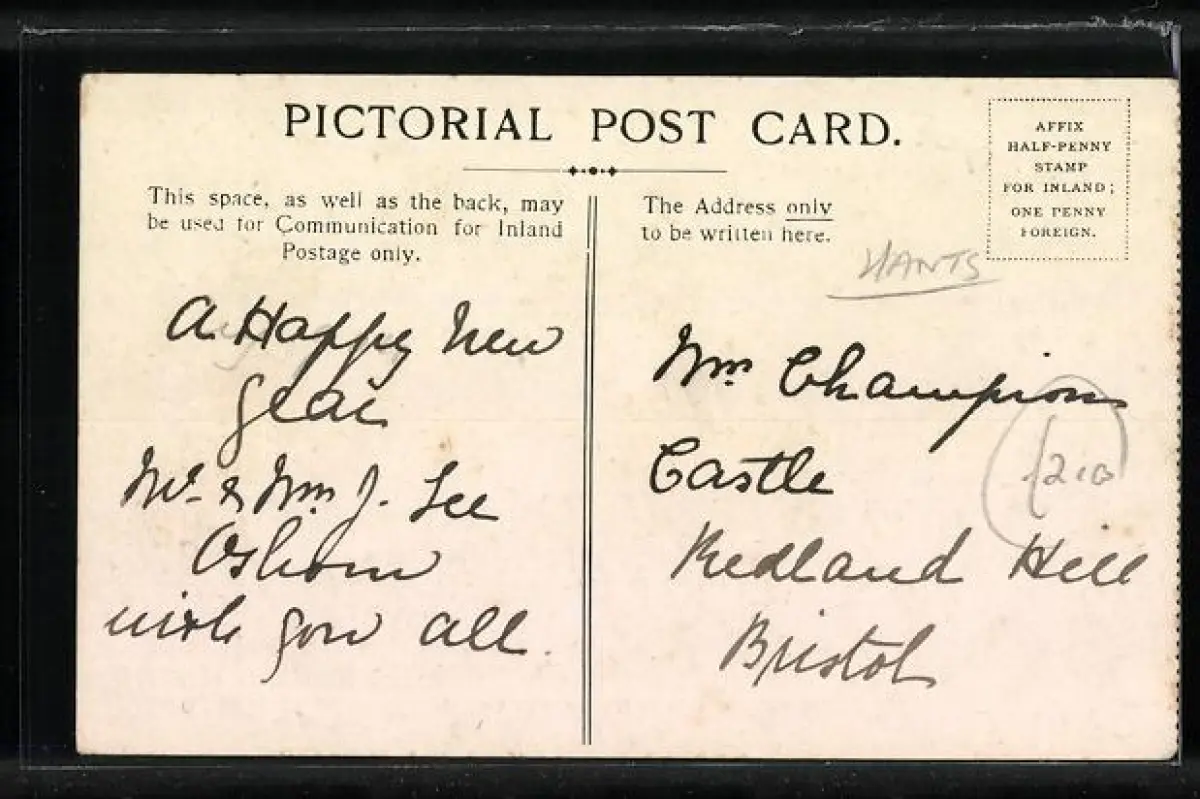 PICTORIAL POST CARD.
AFFIX
HALF-PENNY
STAMP
FOR INLAND;
ONE PENNY
FOREIGN.
This space, as well as the back, may
be used for Communication for Inland
Postage only.
The Address only
to be written here.
HANTS
A Happy New
Year
Mr. & Mrs J. Lee
Osborn
wish you all.
Mrs Champion
Castle
Redland Hill
Bristol